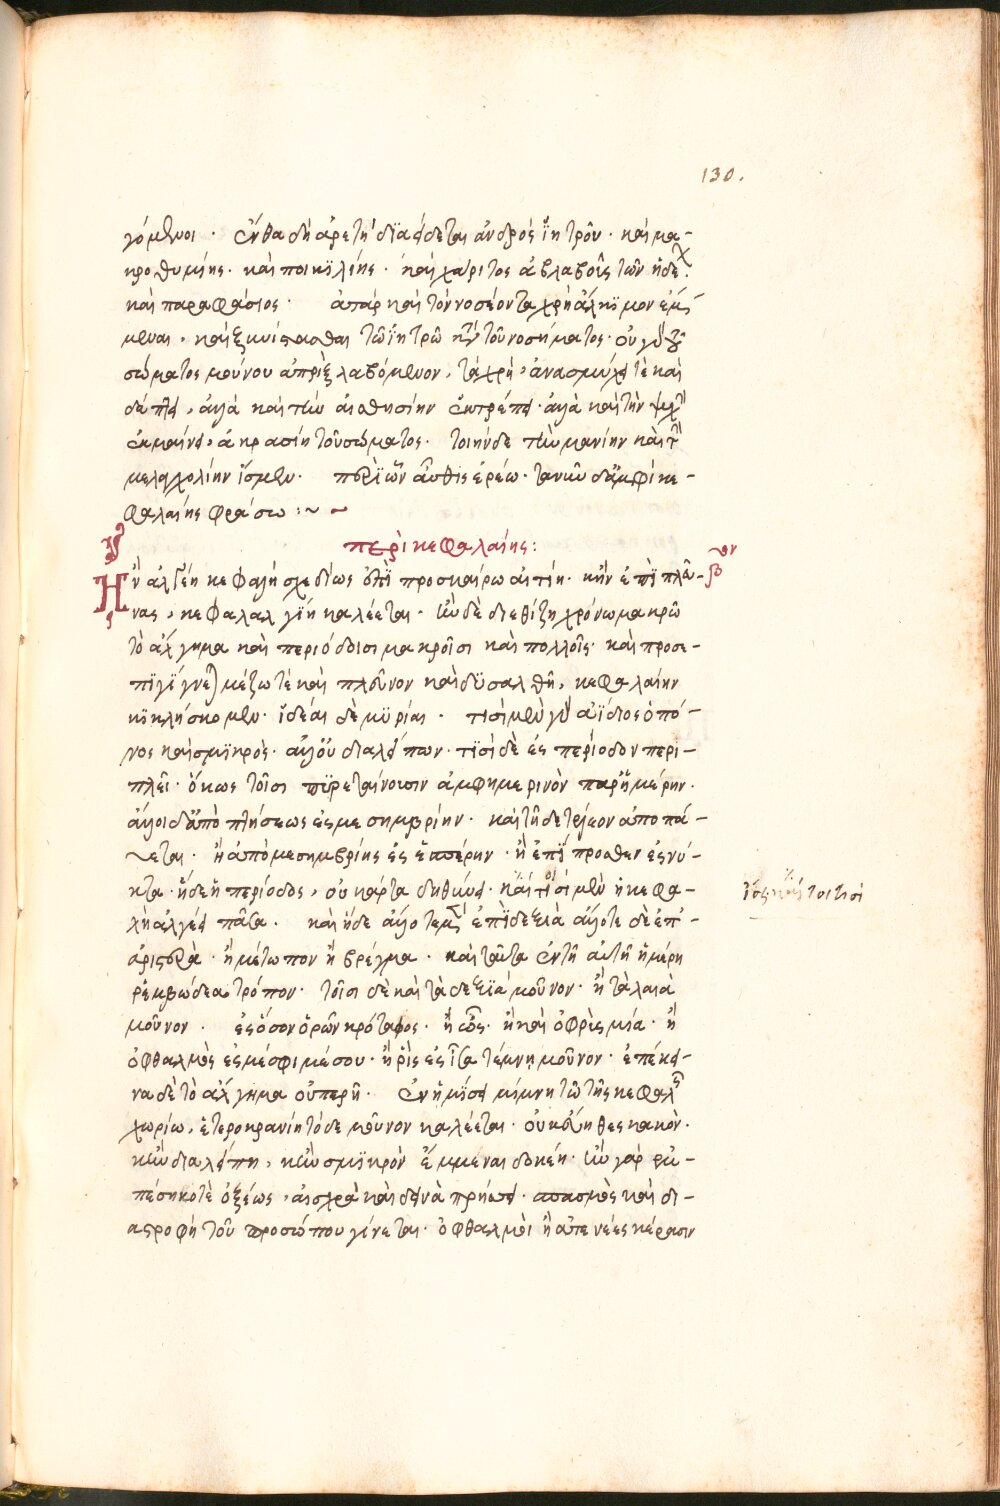 130.
γόμενοι · ἔνθα δὴ ἀρετὴ διαείδεται ἀνδρός ἰητροῦ · καὶ μα-
κροθυμίης · καὶ ποικιλίης · καὶ χάριτος ἀβλαβοῦς τῶν ἡδέχ.
καὶ παραφάσιος · ἀτὰρ καὶ τὸν νοσέοντα χρὴ ἄλκιμον ἔμ-
μεναι · καὶ ξυνίστασθαι τῷ ἰητρῷ κατὰ τοῦ νοσήματος · οὐ γὰρ τοῦ
σώματος μούνου ἀπρὶξ λαβόμενον, ταχρὴ, ἀνασμύχει τὲ καὶ
δάπτει, ἀλλὰ καὶ τὴν αἴσθησιν ἐκτρέπει · ἀλλὰ καὶ τὴν ψυχὴν
ἐκμαίνει, ἀκρασίη τοῦ σώματος · τοιήνδε τὴν μανίην καὶ τὴν
μελαγχολίην ἴσμεν · περὶ ὧν αὖθις ἐρέω · τανῦν δ' ἀμφὶ κε-
φαλαίης φράσω :~ ~
περὶ κεφαλαίης:
Ἢν ἀλγέῃ κεφαλὴ σχεδίως ἐπὶ προσκαίρῳ αἰτίῃ · κἢν ἐπὶ πλεῦ-
νας, κεφαλαλγίη καλέεται · ἢν δὲ διεθίζῃ χρόνῳ μακρῷ
τὸ ἄλγημα καὶ περιόδοισι μακροῖσι καὶ πολλοῖς · καὶ προσε-
πιγίγνεται μέζω τὲ καὶ πλεῦνον καὶ δυσαλθῆ, κεφαλαίην
κικλήσκομεν · ἰδέαι δὲ μυρίαι · τισὶ μὲν γὰρ ἀΐδιος ὁ πό-
νος καὶ σμικρὸς · ἀλλ' οὐ διαλείπων · τισὶ δὲ ἐς περίοδον περι-
πλεῖ · ὅκως τοῖσι πυρεταίνουσιν ἀμφημερινὸν παρ' ἡμέρην ·
ἄλλοι δ' ἀπὸ πτήσεως ἐς μεσημβρίην · καὶ τῇδε τέλεον ἀποπά-
υεται · ἢ ἀπὸ μεσημβρίης ἐς ἑσπέρην · ἢ ἐπὶ πρόσθεν ἐς νύ-
κτα · ἥδε ἡ περίοδος, οὐ κάρτα διηθύνει · καὶ τισι μὲν ἡ κεφα-
λὴ ἀλγέει πᾶσα · καὶ ἥδε ἄλλοτε μὲν ἐπὶ δεξιὰ ἄλλοτε δὲ ἐπ'
ἀριστερὰ · ἢ μέτωπον ἢ βρέγμα · καὶ ταῦτα ἐν τῇ αὐτῇ ἡμέρῃ
ῥεμβώδεα τρόπον · τοῖσι δὲ καὶ τὰ δεξιὰ μοῦνον · ἢ τὰ λαιὰ
μοῦνον · ἐς ὅσον ὁρῶν κρόταφος · ἢ οὖς · ἢ καὶ ὀφρὺς μία · ἢ
ὀφθαλμὸς ἐς μέσφι μέσου · ἢ ῥὶς ἐς ἶσα τέμνῃ μοῦνον · ἐπέκει-
να δὲ τὸ ἄλγημα οὐ περῇ · ἐν ἡμίσει μίμνῃ τῷ τῆς κεφαλῆς
χωρίῳ, ἑτεροκρανίη τόδε μοῦνον καλέεται · οὐκ εὔηθες κακὸν ·
κἢν διαλείπῃ, κἢν σμικρὸν ἔμμεναι δοκέῃ · ἢν γὰρ ἐμ-
πέσῃ κοτὲ ὀξέως, αἰσχρὰ καὶ δεινὰ πρήσσει · σπασμὸς καὶ δι-
αστροφὴ τοῦ προσώπου γίνεται · ὀφθαλμοὶ ἢ ἀτενέες κέρασιν